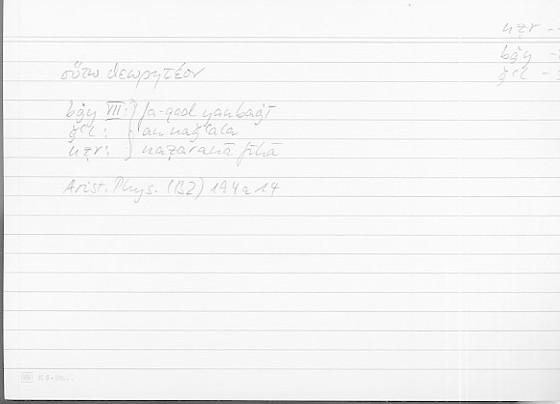 nẓr
bġy
ǧʿl
οὕτω θεωρητέον
bġy VII: fa-qad yanbaġī
ǧʿl: an naǧʿala
nẓr: naẓaranā fīhā
Arist. Phys. (B2) 194a14